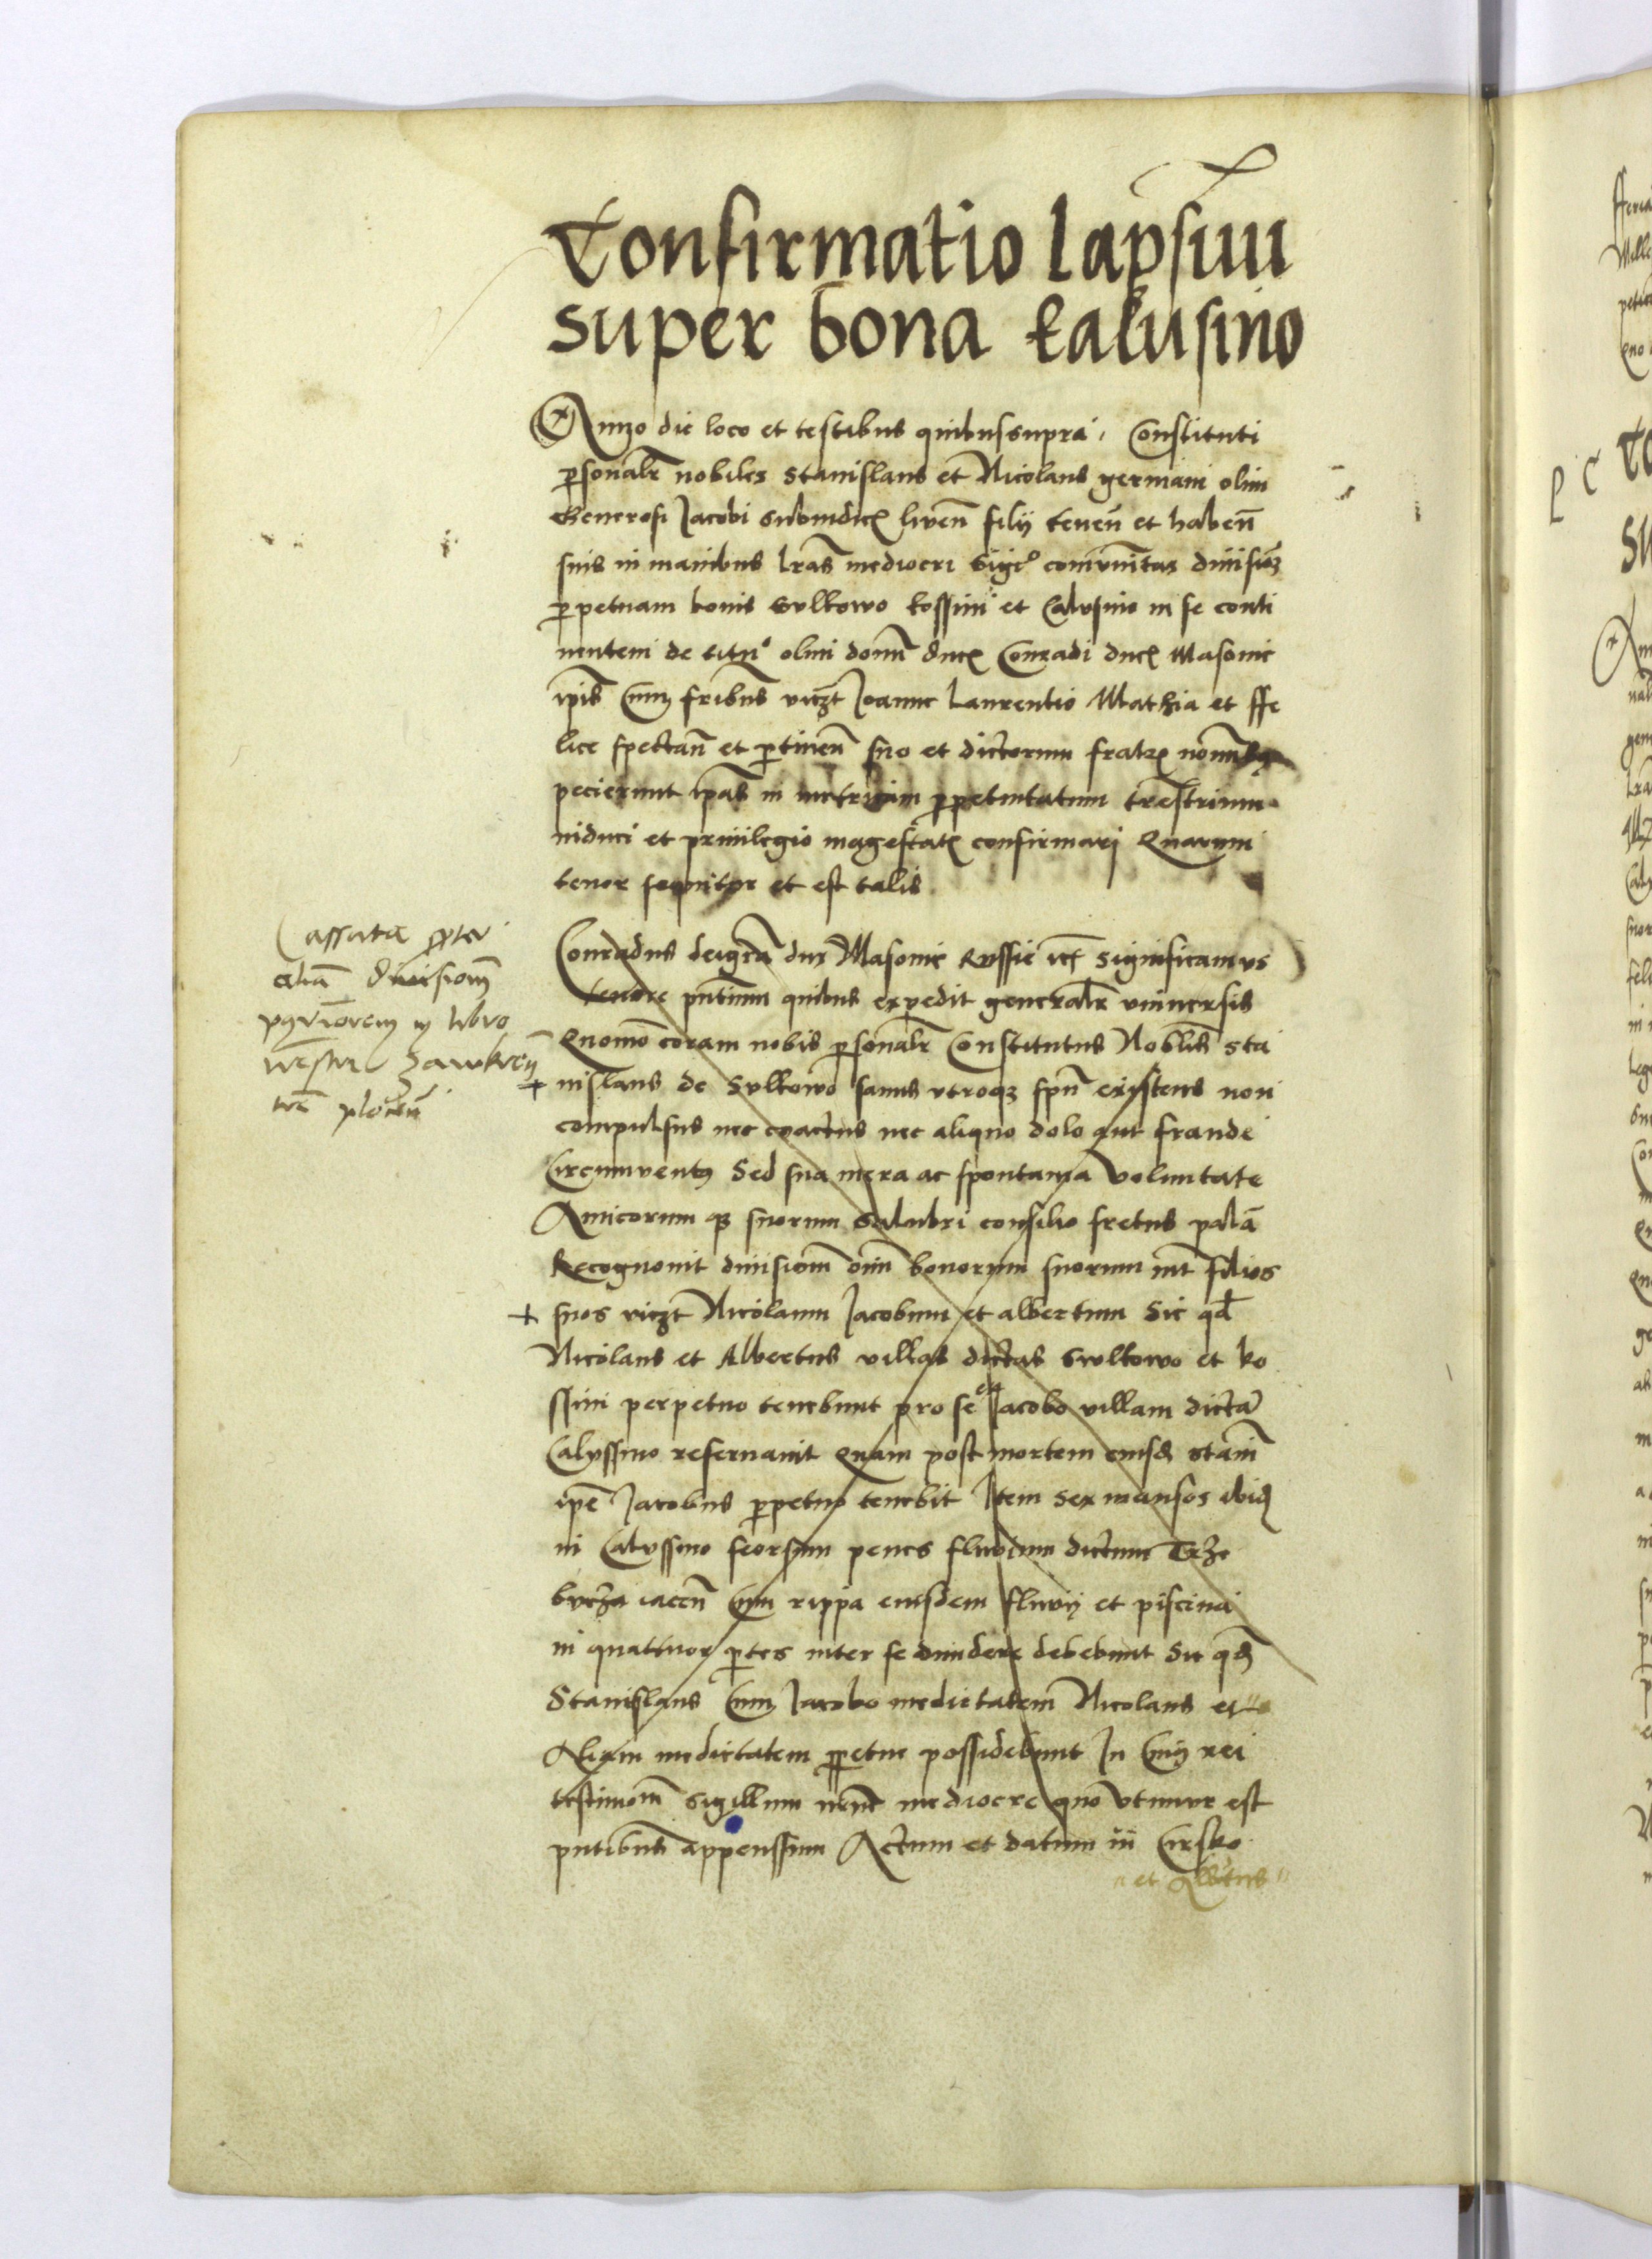 Confirmatio lapsuu
super bona Calusino
Anno die loco et testibus quibus supra, Constituti
p̱sonalr nobiles Stanislaus et Nicolaus germani olim
Generosi Jacobi Subiudicꝭ liuen̄ filij tenen̄ et haben̄
suis in manibus lr̄as mediocri Sigᵒ com̄unitas diuisioꝫ
p̱petuam bonis Sulkowo kossini et Calusino in se conti
nentem de olim domn̄ ducꝭ Conradi ducꝭ Masouie
ip̄is Cum fribus viczt Joanne Laurentio Mathia et ffe
lice spectan̄ et p̱tinen̄ suo et dictorum fratrꝭ
pecierunt ip̄as in metricam p̱petuitatum trestrium
induci et priuilegio magestatꝭ confirmari Quarum
tenor sequitur et est talis
Conradus dei gr̄a dux Masouie Russie ect̄ Significamus
tenore pn̄tium quibus expedit generalr̄ vniuersis
Quomō coram nobis p̱sonalr̄ Constitutus Nobilis Sta
+ nislaus de Sulkowo sanus vtroqꝫ existens non
compulsus nec coactus nec aliquo dolo aut fraude
Circumuentꝰ Sed sua mera ac spontanea voluntate
Amicorum qꝫ suorum salubri consilio fretus palā
Recognouit diuisiom̄ oīm bonorum suorum int̄ filios
+ suos viczt Nicolaum Jacobum et albertum Sic qd̄
Nicolaus et Albertus villas dictas Sulkowo et ko
ssini perpetuo tenebunt pro se et Jacobo villam dictā
Calyssino reseruauit Quam post mortem eiusd̄ Stani
ip̄e Jacobus p̱petuo tenebit Item Sex mansos ibid̄
in Calussino seorsum penes fluuium dictum Trze
bucha iacen̄ Cum rippa eiusdem fluuij et piscina
in quatuor p̱tes inter se diuidere debebunt Sic qd̄
Stanislaus Cum Jacobo medietatem Nicolaus et
Aliam medietatem p̱petue possidebunt In Cuiꝰ rei
testimom̄ Sigillum nrm̄ mediocre quo vtimur est
pn̄tibus appenssum Actum et datum in Cirsko
" et Albertus "
Cassata p̱pter
aliā diuisionē
in libro
zawkren̄
plocen̄